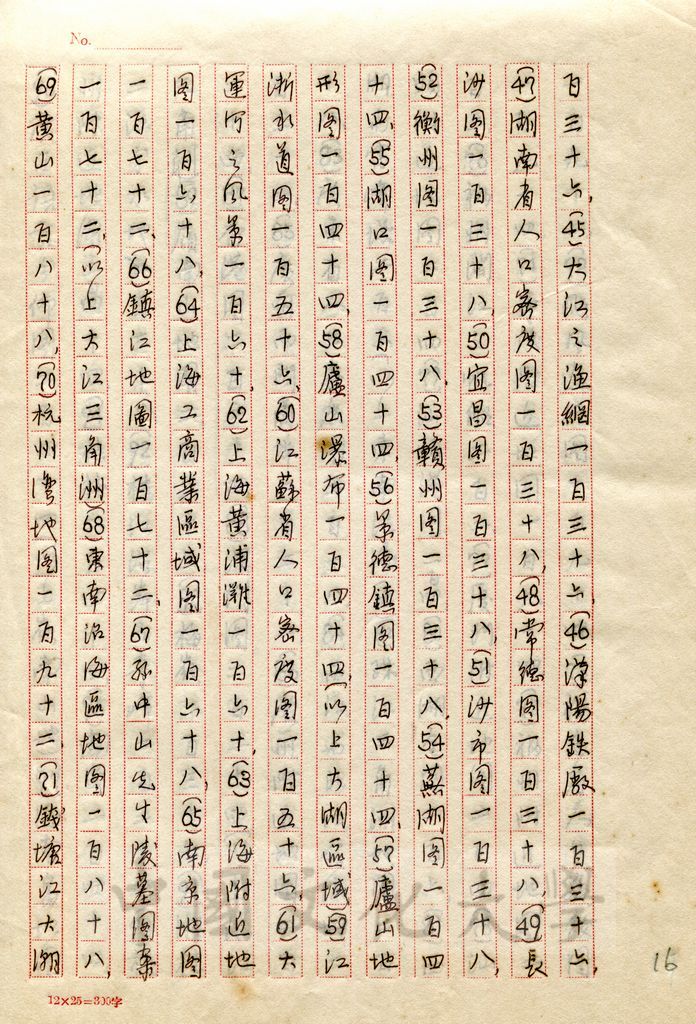 No.
百三十六，(45)大江之漁網一百三十六，(46)漢陽鉄廠一百三十六，
(47)湖南省人口密度图一百三十八，(48)常德图一百三十八，(49)長
沙图一百三十八，(50)宜昌图一百三十八，(51)沙市图一百三十八，
(52)衡州图一百三十八，(53)贛州图一百三十八，(54)蕪湖图一百四
十四，(55)湖口图一百四十四，(56)景德鎮图一百四十四，(57)廬山地
形图一百四十四，(58)廬山瀑布一百四十四，(以上大湖區域(59)江
淅水道图一百五十六，(60)江蘇省人口密度图一百五十六，(61)大
運河之风景一百六十，(62)上海黃浦灘一百六十，(63)上海附近地
图一百六十八，(64)上海工商業區域图一百六十八，(65)南京地图
一百七十二，(66)鎮江地圖一百七十二，(67)孙中山先生陵墓图案
一百七十二，(以上大江三角洲(68)東南沿海區地图一百八十八，
(69)黄山一百八十八，(70)杭州灣地图一百九十二，(71)錢塘江大潮
12×25=300字
16
中國文化大學